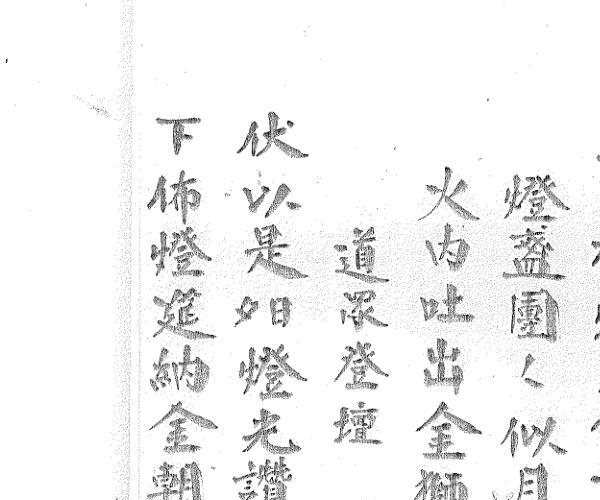 燈盞團〻似月
火内吐出金獅
道眾登壇
伏以是夕日燈光讚
下佈燈筵納金朝